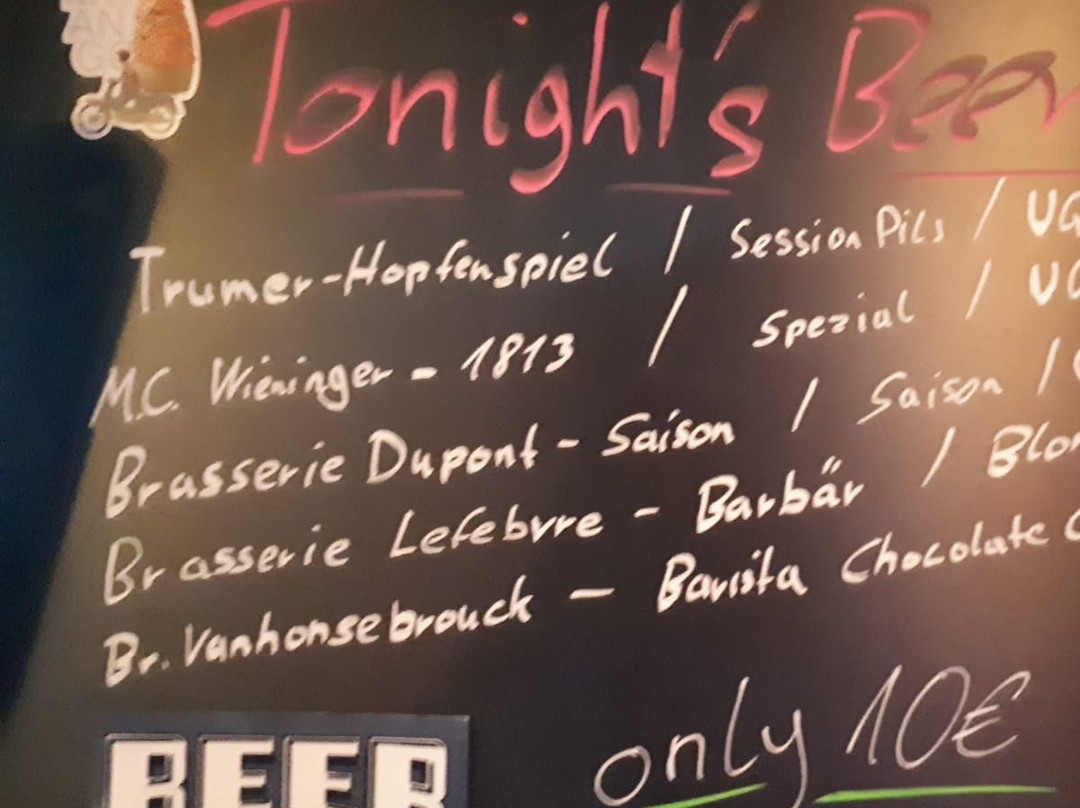 Tonight's Beer
Trumer-Hopfenspiel / Session Pils / UG
M.C. Wieninger - 1813 / Spezial / UG
Brasserie Dupont - Saison / Saison /
Brasserie Lefebvre - Barbär / Blon
Br. Vanhonsebrouck - Barista Chocolate
only 10€
BEER